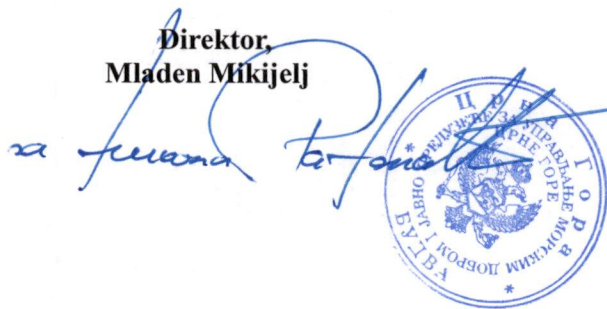 Direktor,
Mladen Mikijelj
za
Црна Гора
ЈАВНО ПРЕДУЗЕЋЕ ЗА УПРАВЉАЊЕ МОРСКИМ ДОБРОМ
ЦРНЕ ГОРЕ
I
БУДВА